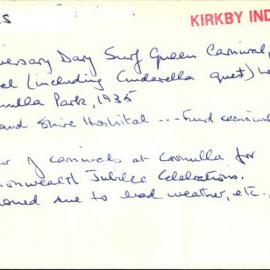 S
KIRKBY IND
iversary Day Surf Queen Carnival,
al (including Cinderella quest)
nulla Park, 1935
and Shire Hospital ... Fund
of carnivals at Cronulla for
monwealth Jubilee Celebrations.
oned due to bad weather, etc.,